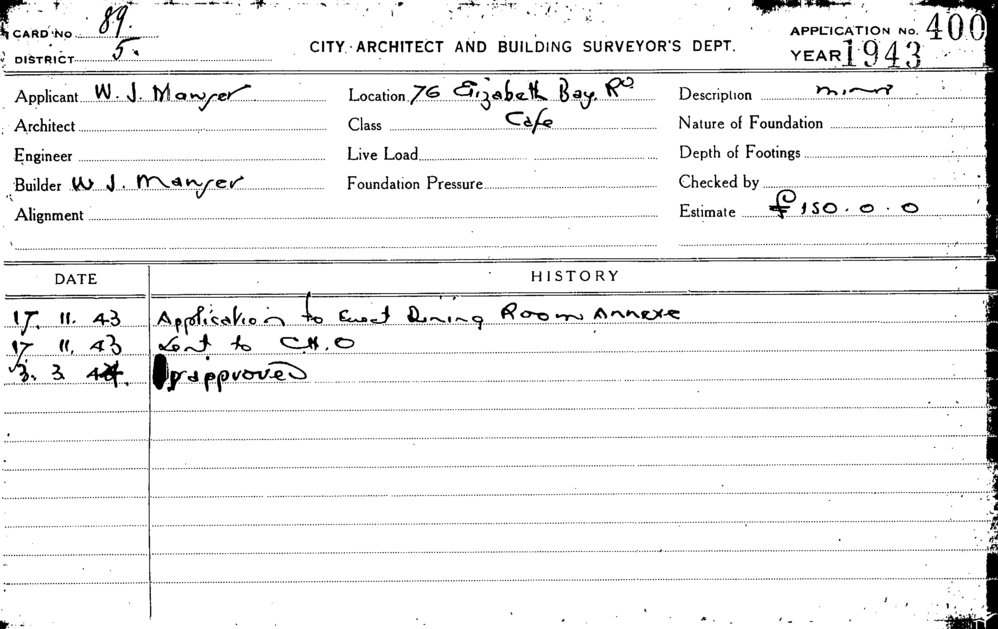 CARD No 89.
DISTRICT 5.
CITY ARCHITECT AND BUILDING SURVEYOR'S DEPT.
APPLICATION No. 400
YEAR 1943
Applicant W. J. Manser Location 76 Elizabeth Bay Rd Description minor
Architect Class Cafe Nature of Foundation
Engineer Live Load Depth of Footings
Builder W J. Manser Foundation Pressure Checked by
Alignment Estimate £150.0.0
DATE HISTORY
17. 11. 43 Application to Erect Dining Room Annexe
17 11. 43 Sent to C.H.O
3. 3. 44. Disapproved